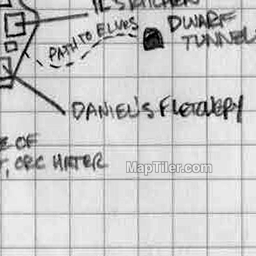 PATH TO ELVES
DWARF
TUNNEL
DANIEL'S FLETCHERY
E OF
, ORC HATER
MapTiler.com